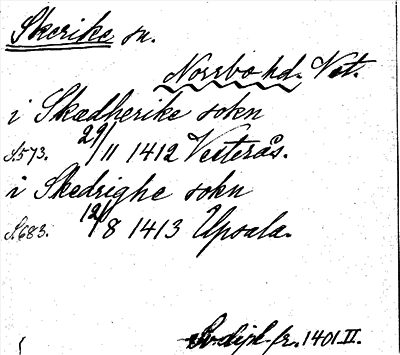 Skerike sn.
Norrbo hd. Vst.
i Skædherike sokn
S.573. 29/11 1412 Vesterås.
i Skedrighe sokn
S.683. 12/8 1413 Upsala.
Sv dipl fr. 1401 II.